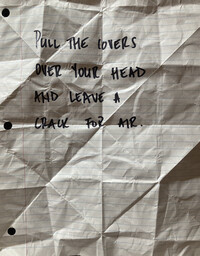 PULL THE COVERS
OVER YOUR HEAD
AND LEAVE A
CRACK FOR AIR.